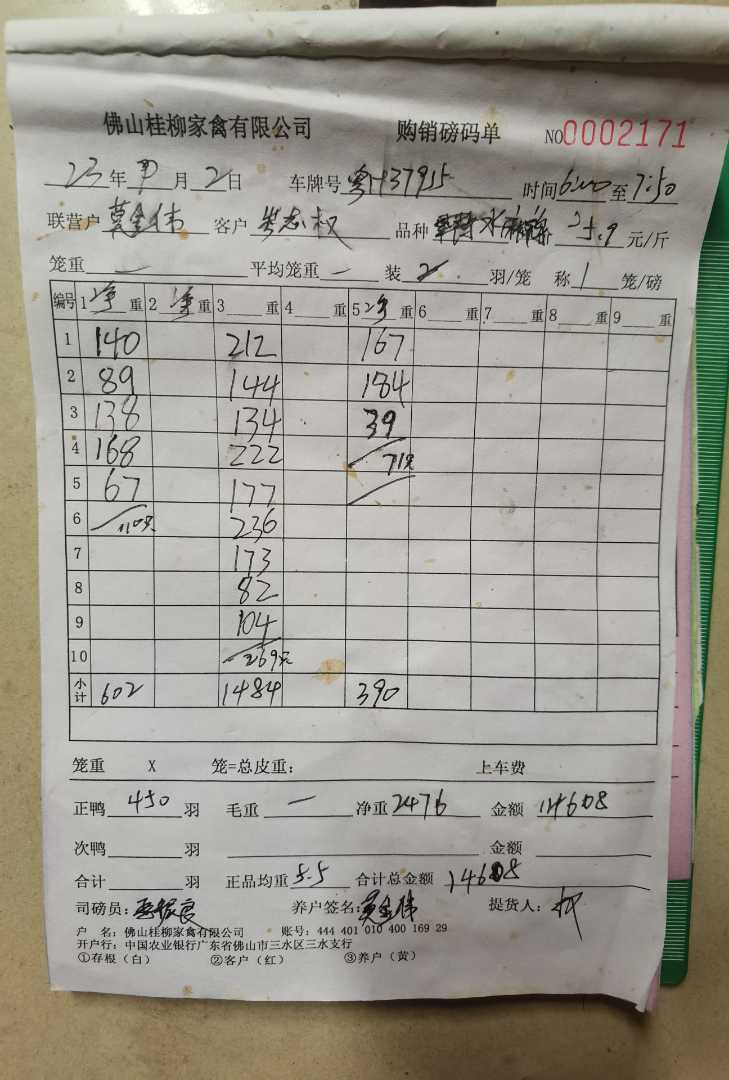 佛山桂柳家禽有限公司 购销磅码单 NO0002171
23年 月2日 车牌号粤H37915 时间6:00至7:50
联营户莫金伟 客户 志权 品种 水 5.9元/斤
笼重— 平均笼重— 装2羽/笼 称1笼/磅
编号 1净重 2净重 3重 4重 5净重 6重 7重 8重 9重
1 140 212 167
2 89 144 184
3 138 134 39
4 168 222 71只
5 67 177
6 110只 236
7 173
8 82
9 104
10 269只
小计 602 1484 390
笼重 X 笼=总皮重: 上车费
正鸭450羽 毛重— 净重2476 金额14608
次鸭 羽 金额
合计 羽 正品均重5.5 合计总金额14608
司磅员: 养户签名:莫金伟 提货人:权
户 名:佛山桂柳家禽有限公司 账号:444 401 010 400 169 29
开户行:中国农业银行广东省佛山市三水区三水支行
①存根(白) ②客户(红) ③养户(黄)